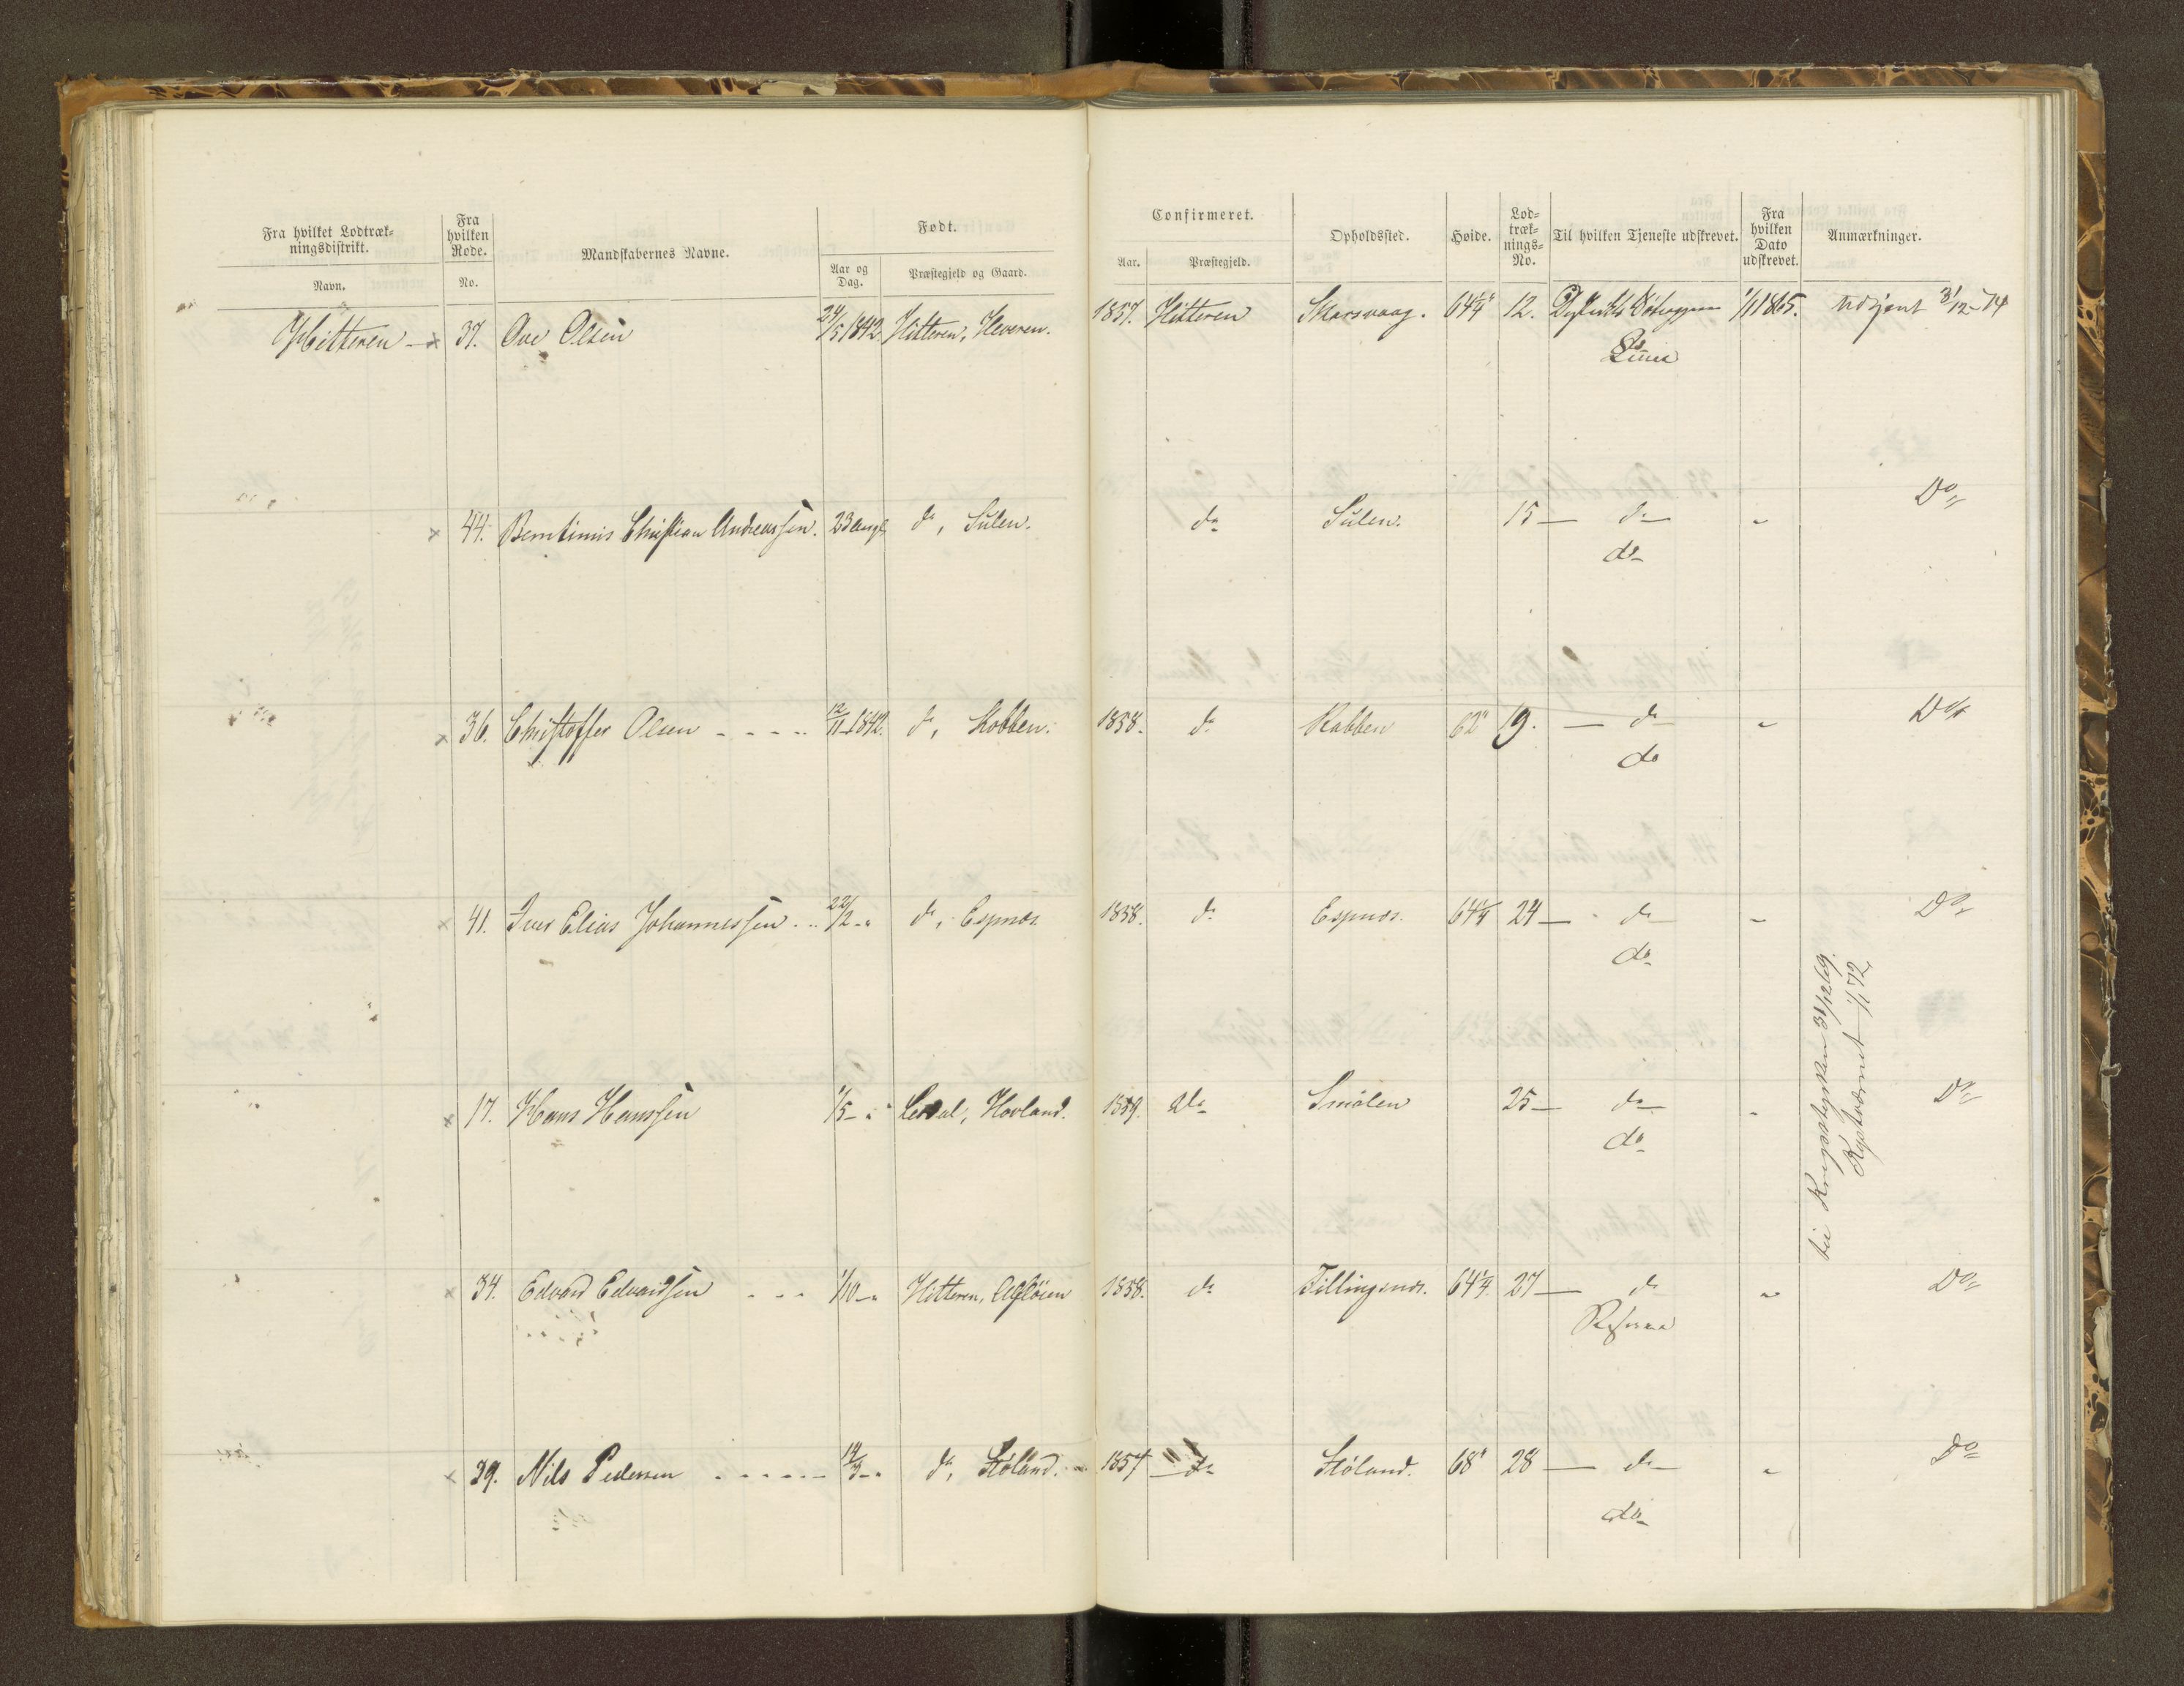 Fra hvilket Lodtræk-
ningsdistrikt.
Navn.
Fra
hvilken
Rode.
No.
Mandskabernes Navne.
Født.
Aar og
Dag.
Præstegjeld og Gaard.
Confirmeret.
Aar.
Præstegjeld.
Opholdssted.
Høide.
Lod-
træk-
nings-
No.
Til hvilken Tjeneste udskrevet.
Fra
hvilken
Dato
udskrevet.
Anmærkninger.
Hitteren x 37. Ove Olsen 24/5 1842. Hitteren, Heveren. 1857. Hitteren Skarsvaag. 64 1/4" 12. 1/1 1865. Udtjent 31/12 74
Linie
x 44. Christian Andreassen. 23 d°, Sulen. d° Sulen. 15 — d° — " D°
d°
x 36. Christoffer Olsen 12/11 1842. d°, Kobben. 1858. d° Kabben 62" 19. — d° " D°
d°
x 41. Iver Elias Johannessen 22/2 - " d°, Espnæs. 1858. d° Espnæs. 64 1/4 24 — d° " D°
d°
x 17. Hans Hanssen 1/5 - " Hovland. d° Smølen 25 — d° " D°
d°
x 34. Edvard Edvardsen 1/10 - " Hitteren, 1858. d° Fillingsnæs. 64 1/4 27 — d° " D°
Reserve
x 39. Nils Pedersen 14/3 - " d°, 1857 d° 68" 28 — d° " D°
d°
til Krigsstyrken 31/12 69.
Kystværnet 1/1 72